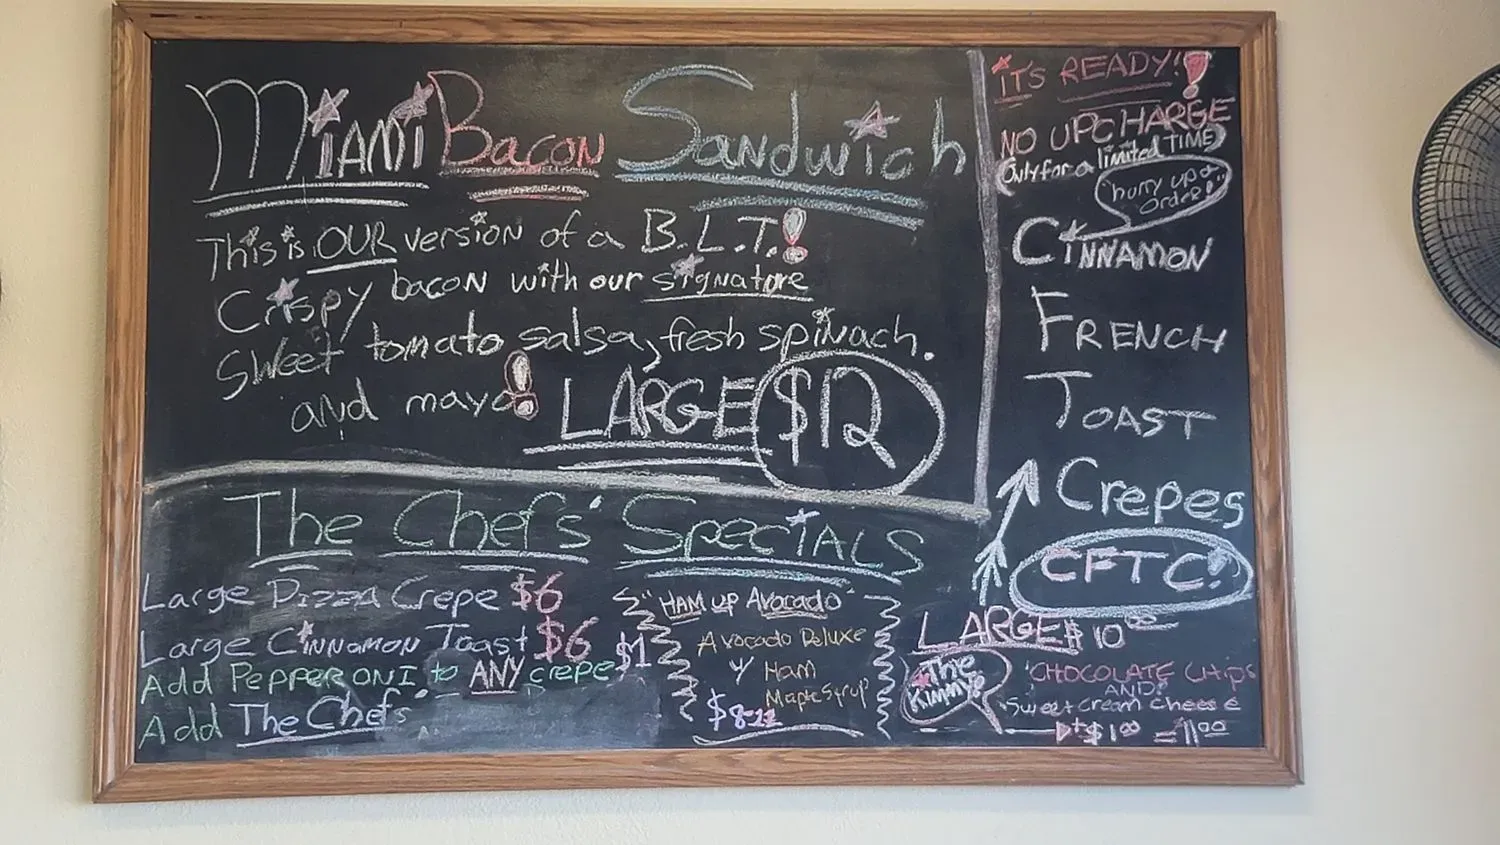 Miami Bacon Sandwich
This is OUR version of a B.L.T.!
Crispy bacon with our signature
sweet tomato salsa, fresh spinach.
and mayo! LARGE $12
The Chefs' Specials
Large Pizza Crepe $6
Large Cinnamon Toast $6
Add Pepperoni to ANY crepe $1
Add The Chefs'
"HAM UP Avocado"
Avocado Deluxe
w/ Ham
Maple Syrup
$8-11
IT'S READY!!
NO UPCHARGE
(Only for a limited TIME)
"hurry up & Order!"
CINNAMON
FRENCH
TOAST
Crepes
CFTC!
LARGE $10
The Kimmy!
CHOCOLATE CHIPS
AND
Sweet cream cheese
+$1.00 = 11.00